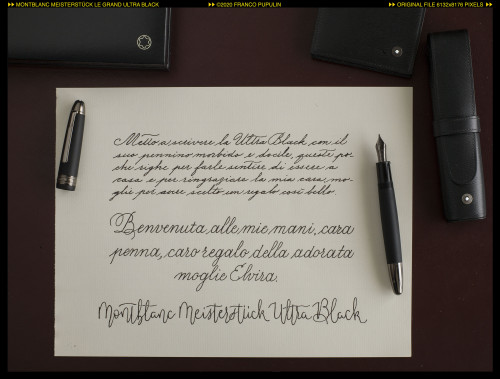 MONTBLANC MEISTERSTÜCK LE GRAND ULTRA BLACK
©2020 FRANCO PUPULIN
ORIGINAL FILE 6132x8176 PIXELS
Metto a scrivere la Ultra Black con il
suo pennino morbido e docile, queste po-
che righe per farle sentire di essere a
casa e per ringraziare la mia cara mo-
glie per aver scelto un regalo così bello
Benvenuta, alle mie mani, cara
penna, caro regalo della adorata
moglie Elvira.
Montblanc Meisterstück Ultra Black